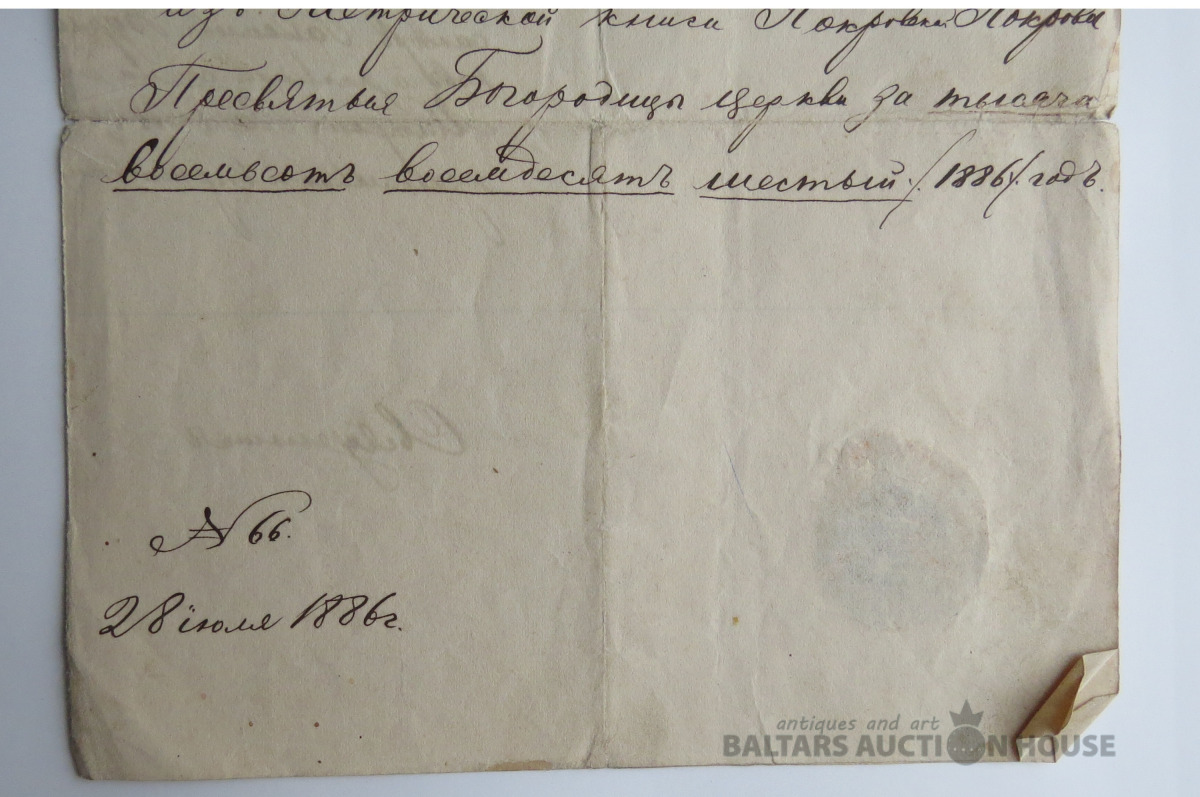 изъ Метрической книги Покровской Покрова
Пресвятыя Богородицы церкви за тысяча
восемьсотъ восемдесятъ шестый /.1886/. годъ.
№ 66.
28 іюля 1886 г.
antiques and art
BALTARS AUCTION HOUSE